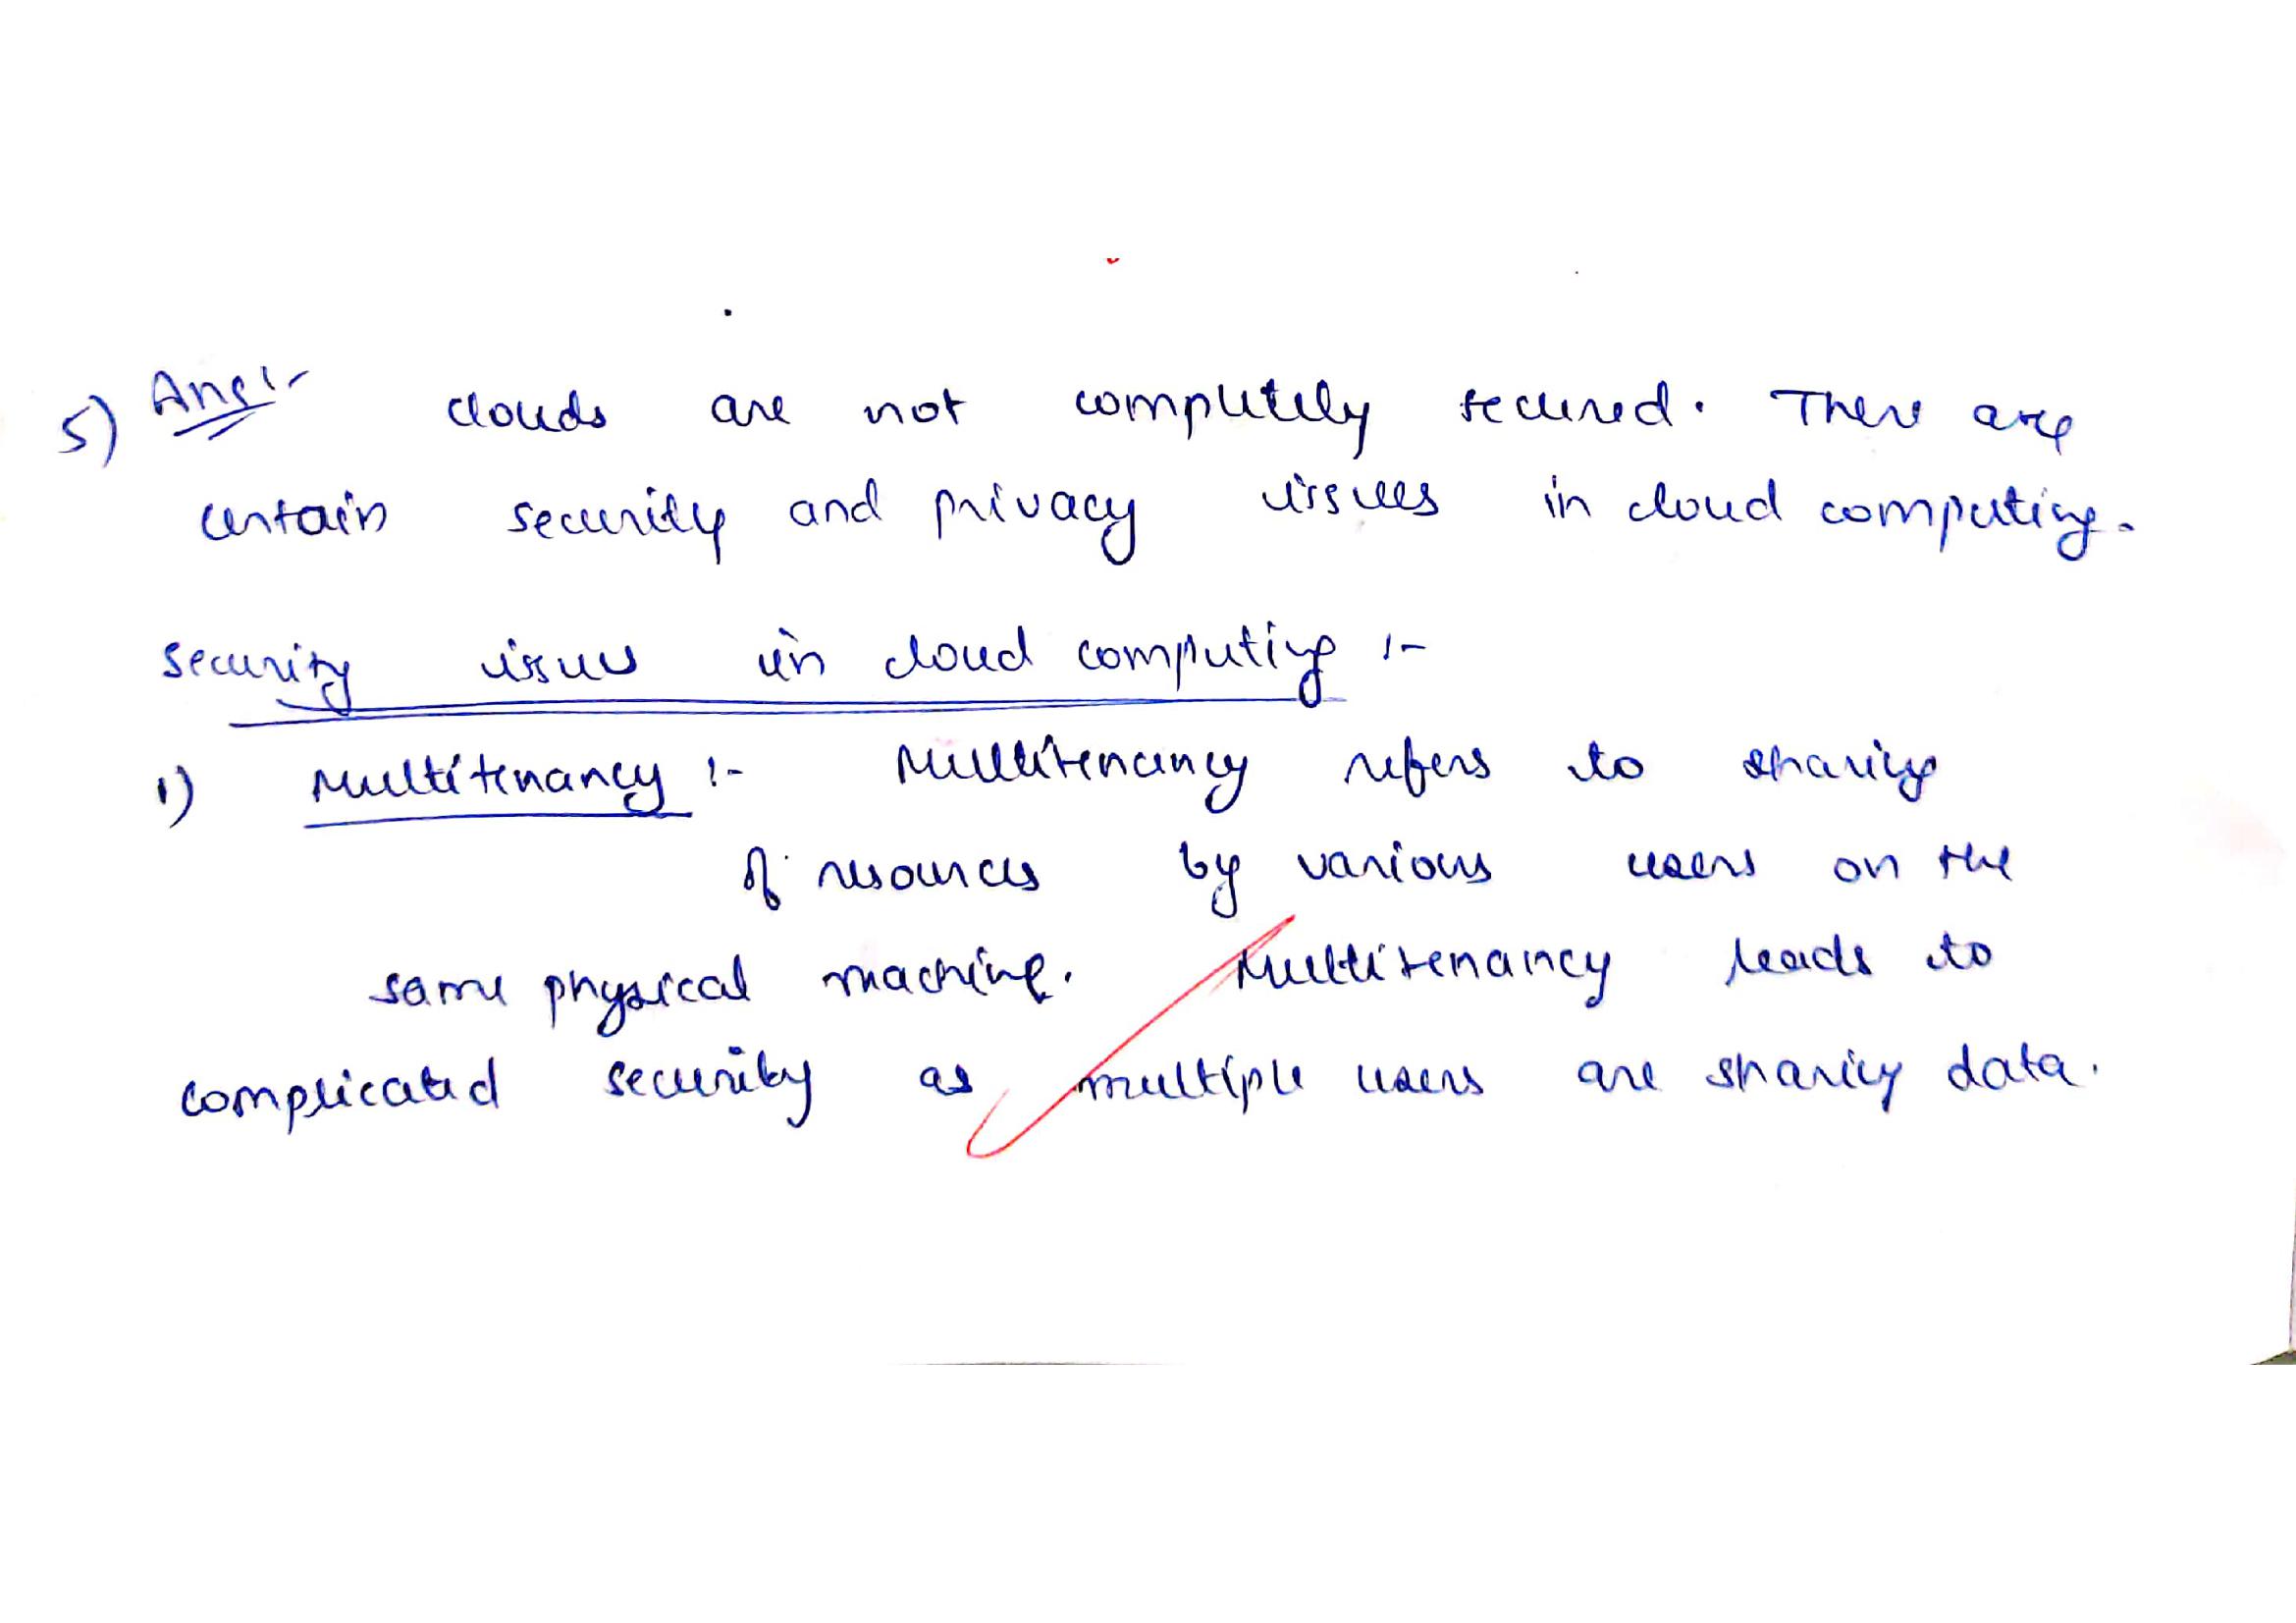 5) Ans:- clouds are not completely secured. There are
certain security and privacy issues in cloud computing.
security issues in cloud computing :-
1) Multitenancy :- Multitenancy refers to sharing
of resources by various users on the
same physical machine. Multitenancy leads to
complicated security as multiple users are sharing data.